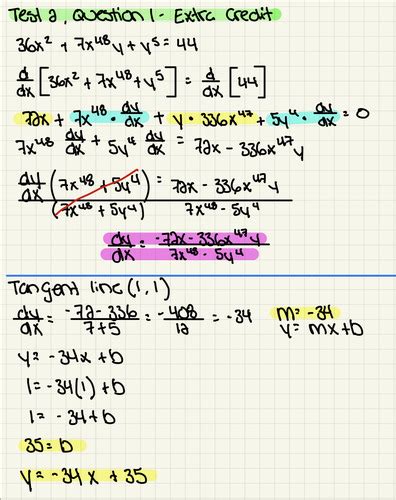 Test 2, Question 1 - Extra Credit
36x² + 7x⁴⁸y + y⁵ = 44
d/dx [36x² + 7x⁴⁸y + y⁵] = d/dx [44]
72x + 7x⁴⁸ · dy/dx + y · 336x⁴⁷ + 5y⁴ · dy/dx = 0
7x⁴⁸ dy/dx + 5y⁴ dy/dx = 72x - 336x⁴⁷y
dy/dx (7x⁴⁸ + 5y⁴) / (7x⁴⁸ + 5y⁴) = 72x - 336x⁴⁷y / 7x⁴⁸ - 5y⁴
dy/dx = -72x - 336x⁴⁷y / 7x⁴⁸ - 5y⁴
Tangent line (1,1)
dy/dx = -72 - 336 / 7+5 = -408 / 12 = -34
m = -34
y = mx + b
y = -34x + b
1 = -34(1) + b
1 = -34 + b
35 = b
y = -34x + 35